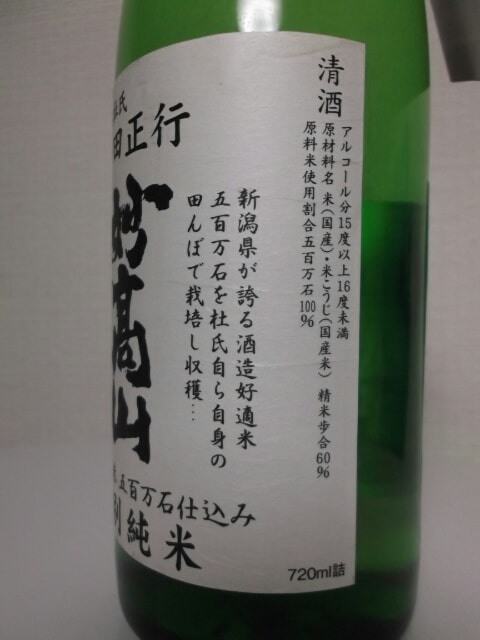 清酒
アルコール分15度以上16度未満
原材料名 米(国産)・米こうじ(国産米) 精米歩合60%
原料米使用割合五百万石100%
新潟県が誇る酒造好適米
五百万石を杜氏自ら自身の
田んぼで栽培し収穫…
杜氏
田正行
妙高山
五百万石仕込み
別純米
720ml詰